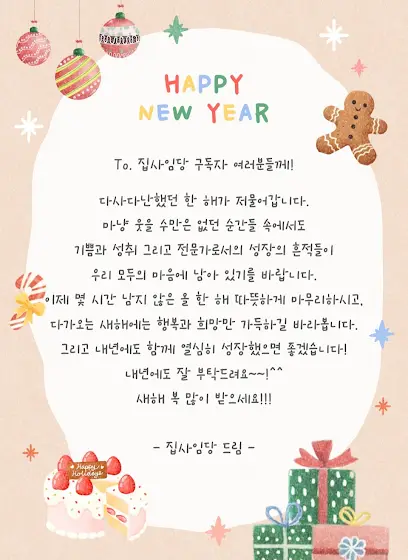 HAPPY
NEW YEAR
To. 집사임당 구독자 여러분들께!
다사다난했던 한 해가 저물어갑니다.
마냥 웃을 수만은 없던 순간들 속에서도
기쁨과 성취 그리고 전문가로서의 성장의 흔적들이
우리 모두의 마음에 남아 있기를 바랍니다.
이제 몇 시간 남지 않은 올 한 해 따뜻하게 마무리하시고,
다가오는 새해에는 행복과 희망만 가득하길 바라봅니다.
그리고 내년에도 함께 열심히 성장했으면 좋겠습니다!
내년에도 잘 부탁드려요~~!^^
새해 복 많이 받으세요!!!
- 집사임당 드림 -
Happy
Holidays